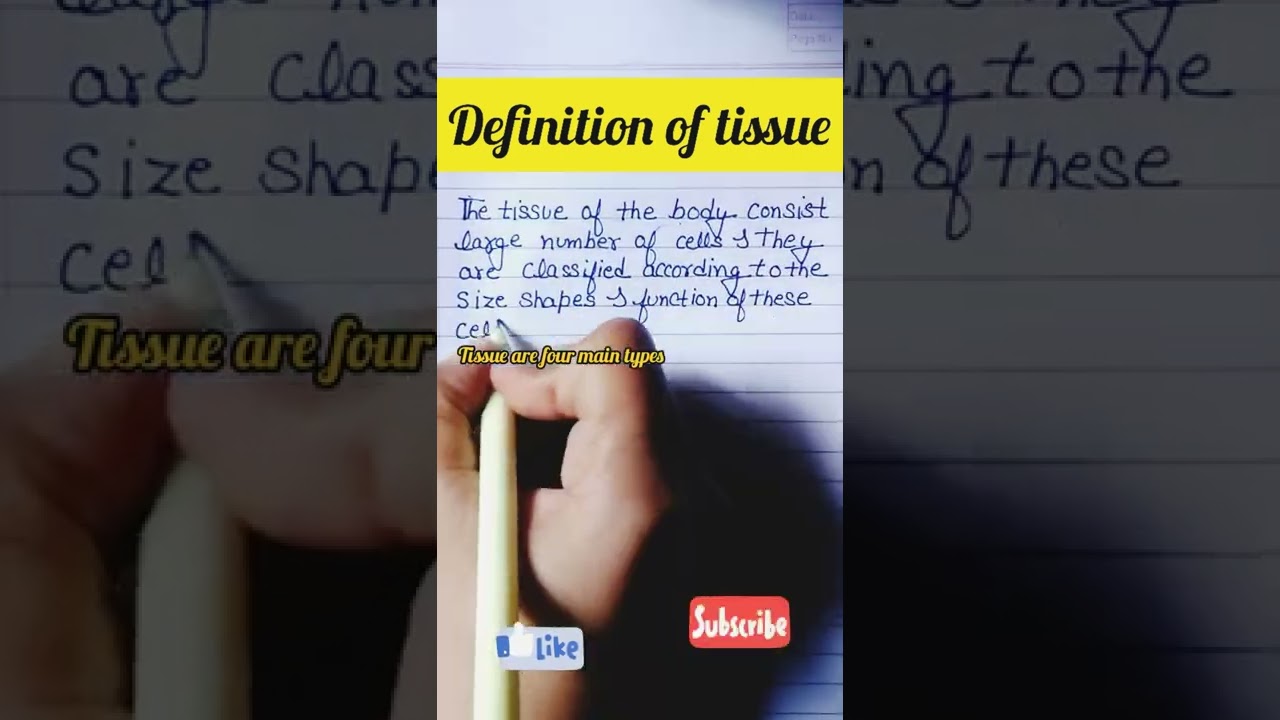 Definition of tissue
The tissue of the body consist
large number of cells & they
are classified according to the
size shapes & function of these
cel
Tissue are four main types
Like
Subscribe